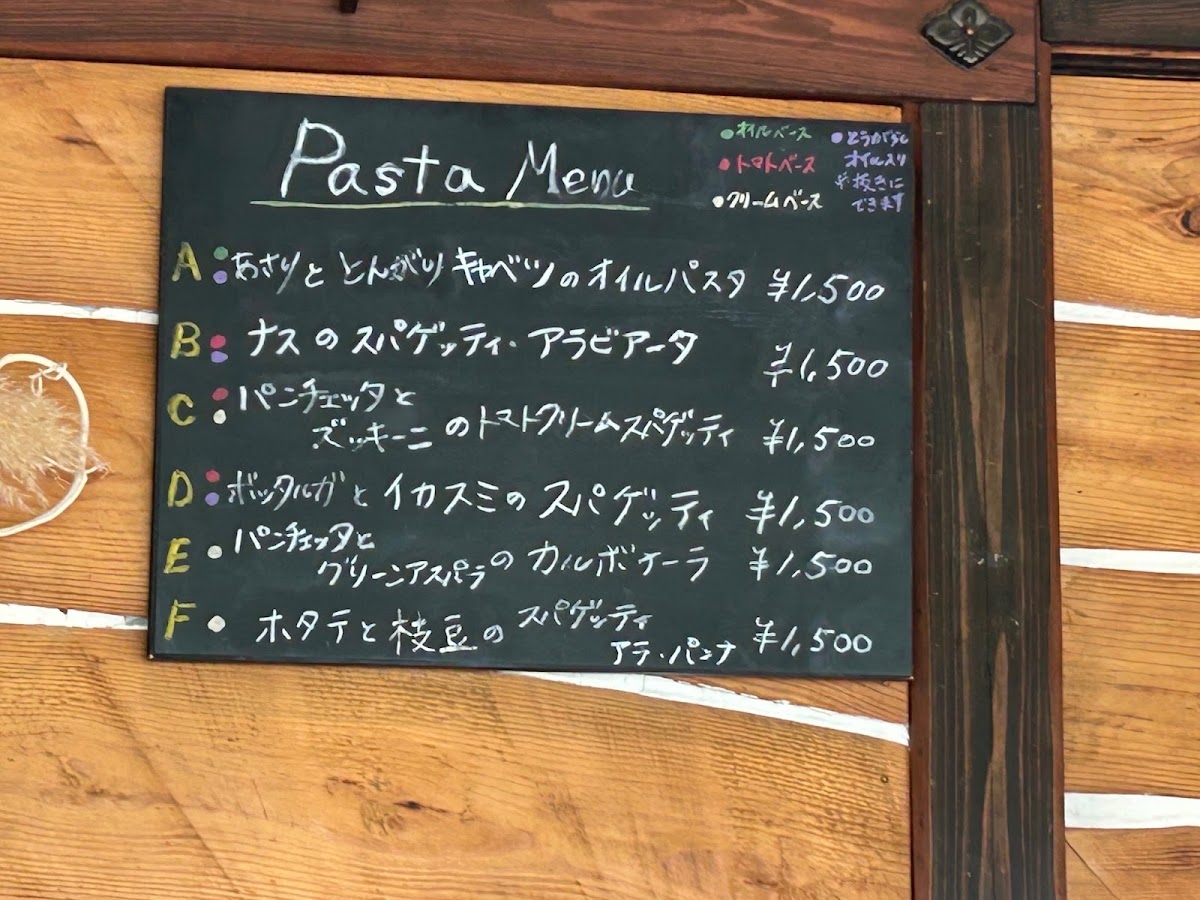 Pasta Menu
●オイルベース
●トマトベース
●クリームベース
●とうがらし
オイル入り
※抜きに
できます
A:あさりととんがりキャベツのオイルパスタ ¥1,500
B:ナスのスパゲッティ・アラビアータ ¥1,500
C:パンチェッタと
ズッキーニのトマトクリームスパゲッティ ¥1,500
D:ボッタルガとイカスミのスパゲッティ ¥1,500
E・パンチェッタと
グリーンアスパラのカルボナーラ ¥1,500
F・ホタテと枝豆のスパゲッティ
アラ・パンナ ¥1,500